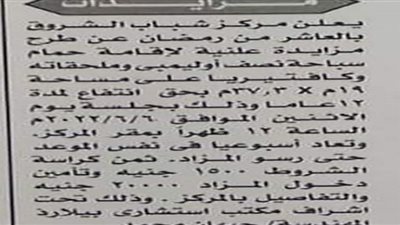 مزايدات
يعلن مركز شباب الشروق
بالعاشر من رمضان عن طرح
مزايدة علنية لاقامة حمام
سباحة نصف أوليمبى وملحقاته
وكافتيريا على مساحة
١٩م X ٣٧,٣م بحق انتفاع لمدة
١٢ عاما وذلك بجلسة يوم
الاثنين الموافق ٢٠٢٢/٦/٦م
الساعة ١٢ ظهراً بمقر المركز.
وتعاد أسبوعيا فى نفس الموعد
حتى رسو المزاد. ثمن كراسة
الشروط ١٥٠٠ جنيه وتأمين
دخول المزاد ٢٠٠٠٠ جنيه
والتفاصيل بالمركز. وذلك تحت
اشراف مكتب استشارى بيلارد